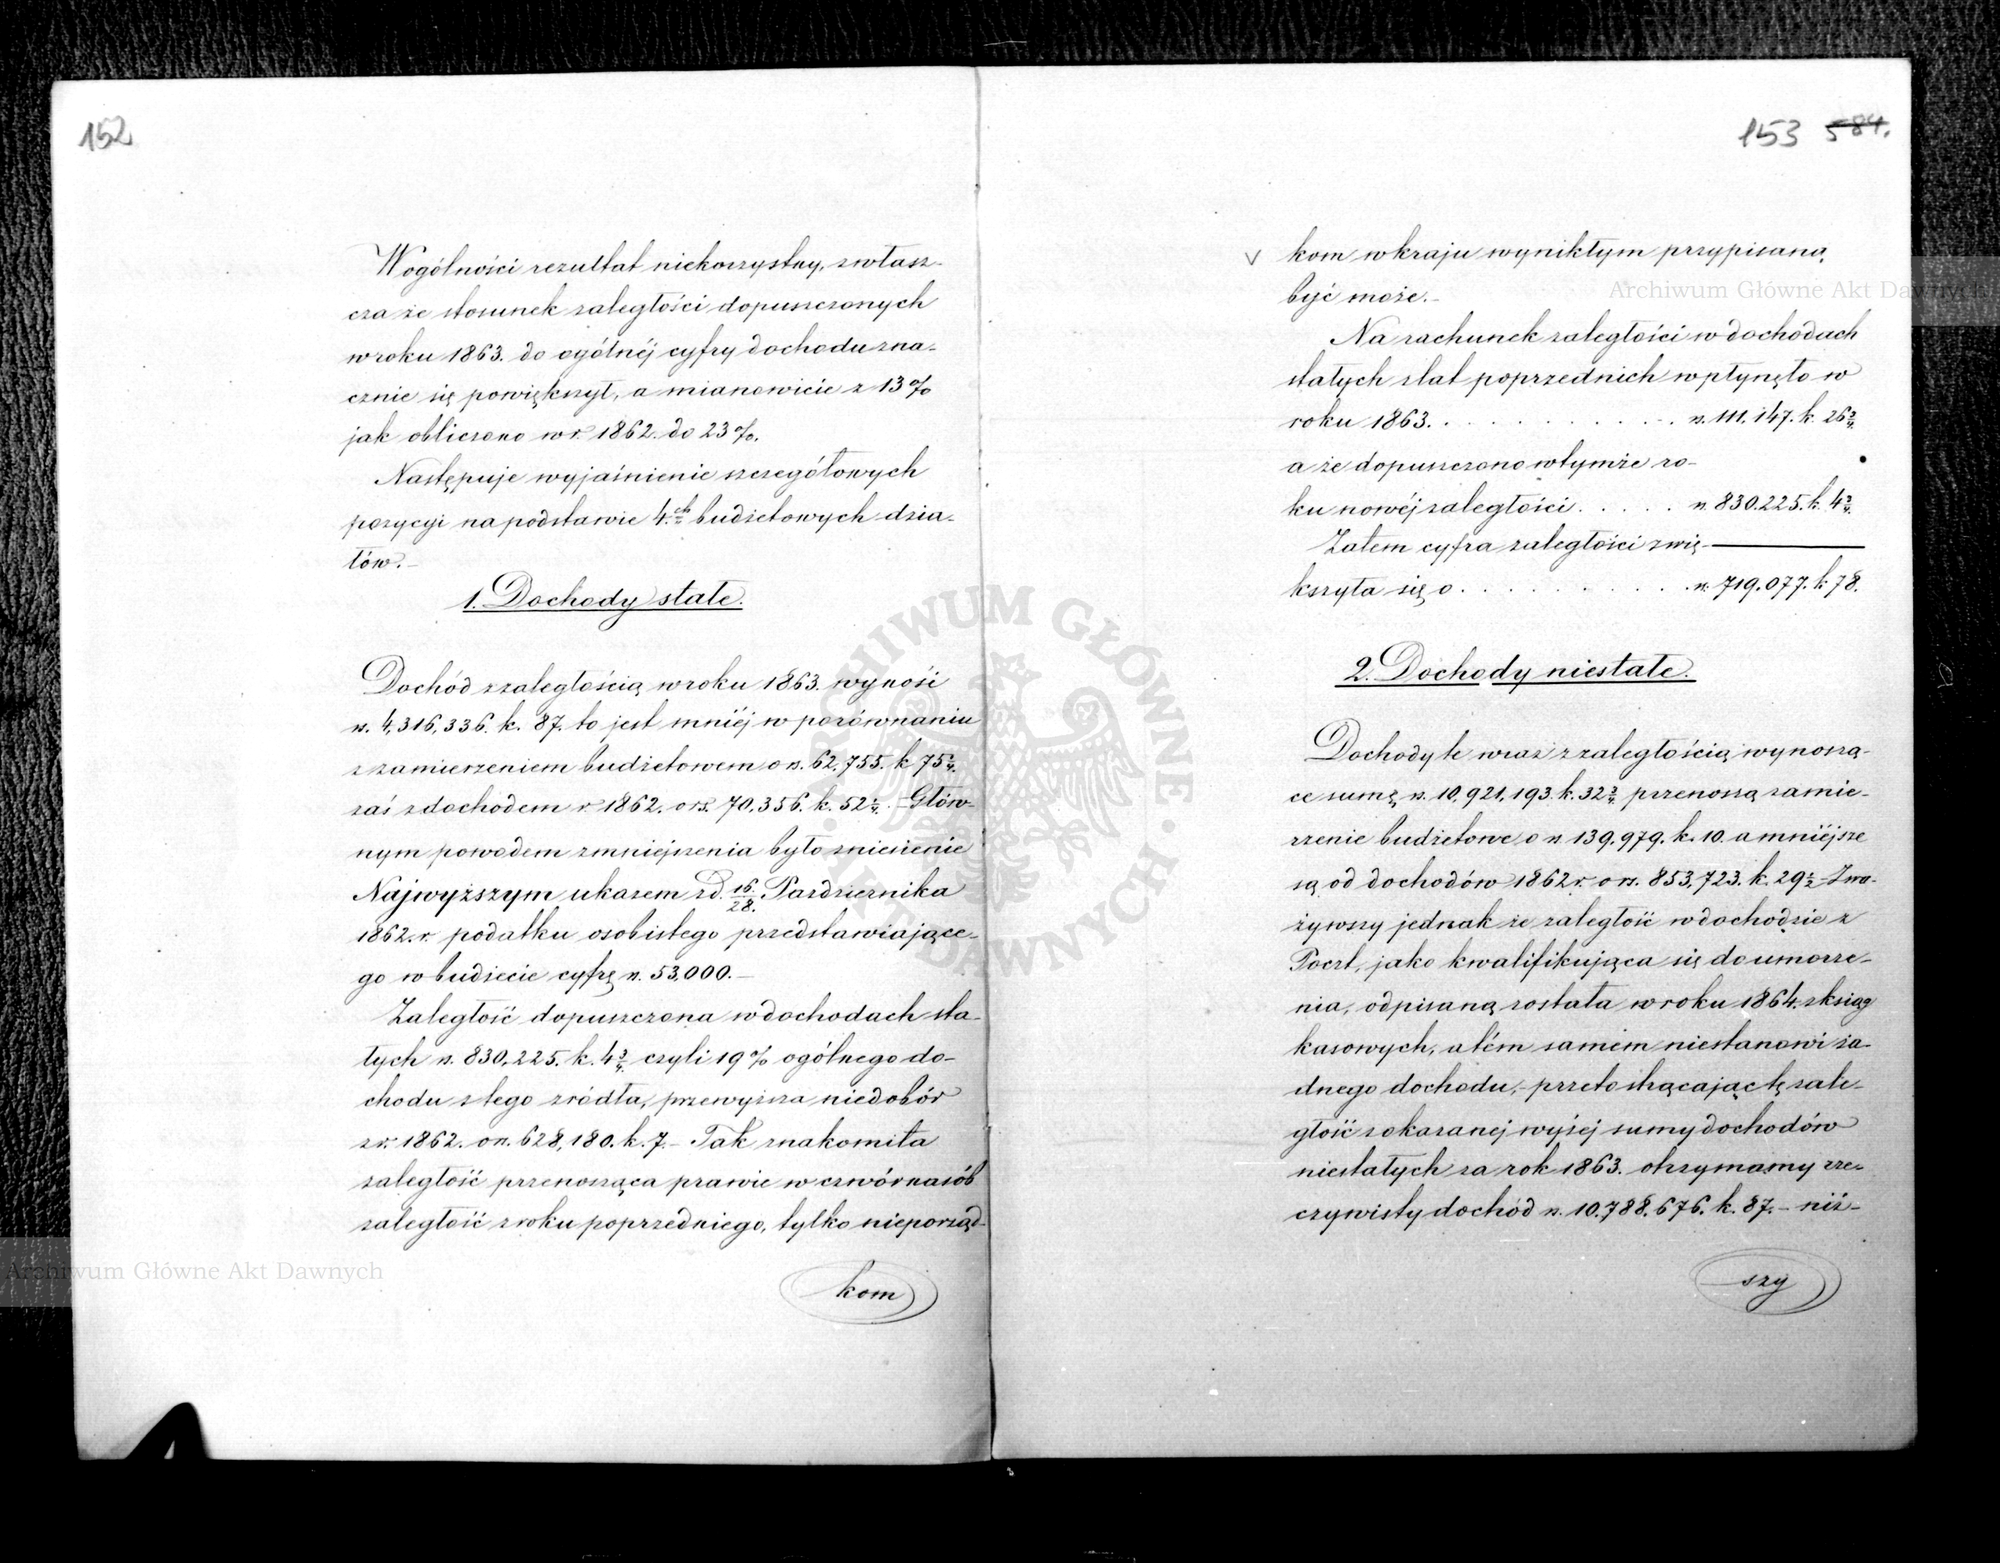 152
Wogólności rezultat niekorzystny, zwłasz-
cza że stosunek zaległości dopuszczonych
w roku 1863. do ogólnéj cyfry dochodu zna-
cznie się powiększył, a mianowicie z 13%
jak obliczono w r. 1862. do 23%.
Następuje wyjaśnienie szczegółowych
pozycyi na podstawie 4.ch budżetowych dzia-
łów.-
1. Dochody stałe.
Dochód z zaległością w roku 1863. wynosi
rs. 4,316,336. k. 87. to jest mniéj w porównaniu
z zamierzeniem budżetowem o rs. 62,755. k 75 3/4.
zaś z dochodem r 1862. o rs. 70,356. k. 52 1/4. Głów-
nym powodem zmniejszenia było zniesienie
Najwyższym ukazem z d. 16/28. Pazdziernika
1862. r. podatku osobistego przedstawiające-
go w budżecie cyfrę rs. 53,000.-
Zaległość dopuszczona w dochodach sta-
łych rs. 830,225. k. 4 3/4 czyli 19% ogólnego do-
chodu z tego źródła, przewyższa niedobór
z r. 1862. o rs. 628,180. k. 7.- Tak znakomita
zaległość przenosząca prawie w czwórnasób
zaległość z roku poprzedniego, tylko nieporząd-
kom
153 584.
v kom w kraju wynikłym przypisaną
być może.-
Na rachunek zaległości w dochodach
stałych z lat poprzednich wpłynęło w
roku 1863. . . . . . . . . . . rs. 111,147. k. 26 3/4.
a że dopuszczono w tymże ro-
ku nowéj zaległości . . . . . rs. 830.225. k. 4 3/4.
Zatem cyfra zaległości zwię-
kszyła się o . . . . . . . . . . rs. 719.077. k 78.
2. Dochody niestałe.
Dochody te wraz z zaległością wynoszą-
ce sumę rs. 10,921,193. k. 32 3/4 przenoszą zamie-
rzenie budżetowe o rs 139,979. k. 10. a mniéjsze
są od dochodów 1862 r. o rs. 853,723. k. 29 1/2 - Zwa-
żywszy jednak że zaległość w dochodzie z
Poczt, jako kwalifikująca się do umorze-
nia, odpisaną została w roku 1864. z ksiąg
kasowych, a tém samém niestanowi ża-
dnego dochodu,- przeto strącając tę zale-
głość z okazanej wyżej sumy dochodów
niestałych za rok 1863. otrzymamy rze-
czywisty dochód rs. 10.788.676. k. 87.- niż-
szy
Archiwum Główne Akt Dawnych
Archiwum Główne Akt Dawnych
ARCHIWUM GŁÓWNE AKT DAWNYCH